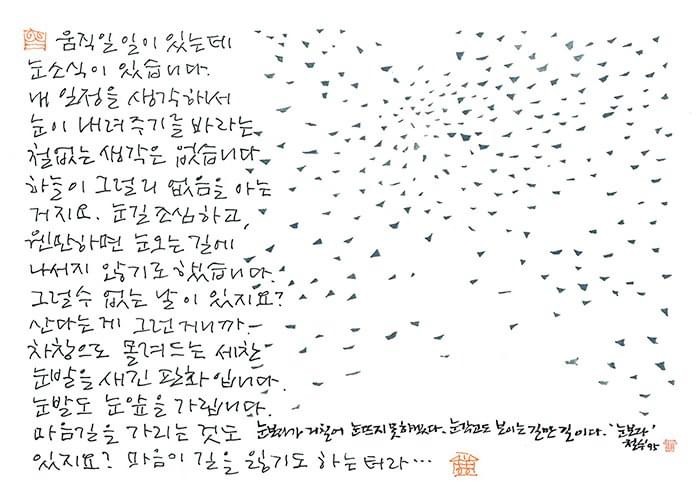 움직일 일이 있는데
눈소식이 있습니다.
내 일정을 생각하서
눈이 내려주기를 바라는
철없는 생각은 없습니다
하늘이 그럴리 없음을 아는
거지요. 눈길 조심하고,
웬만하면 눈오는 길에
나서지 않기로 했습니다.
그럴수 없는 날이 있지요?
산다는게 그런거니까-
차창으로 몰려드는 세찬
눈발을 새긴 판화입니다.
눈발도 눈앞을 가립니다.
마음길을 가리는 것도
있지요? 마음이 길을 잃기도 하는 터라…
눈보라가 거칠어 눈뜨지 못하겠다. 눈감고도 보이는 길만 길이다. '눈보라'
철수 95